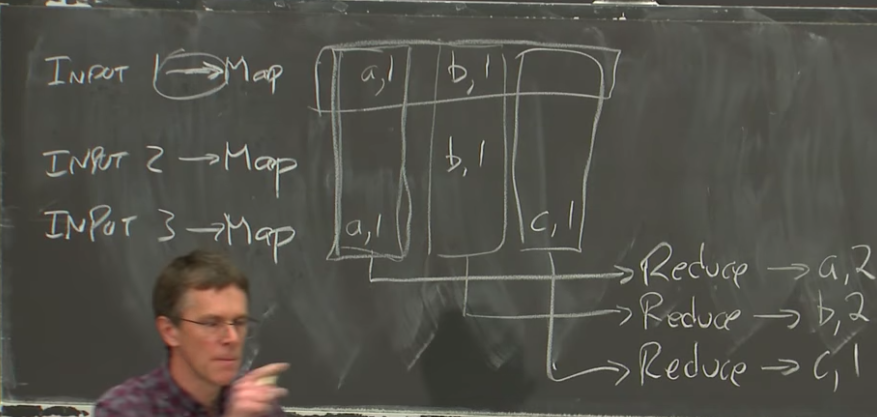 INPUT 1 → Map a,1 b,1
INPUT 2 → Map b,1
INPUT 3 → Map a,1 c,1
Reduce → a,2
Reduce → b,2
Reduce → c,1